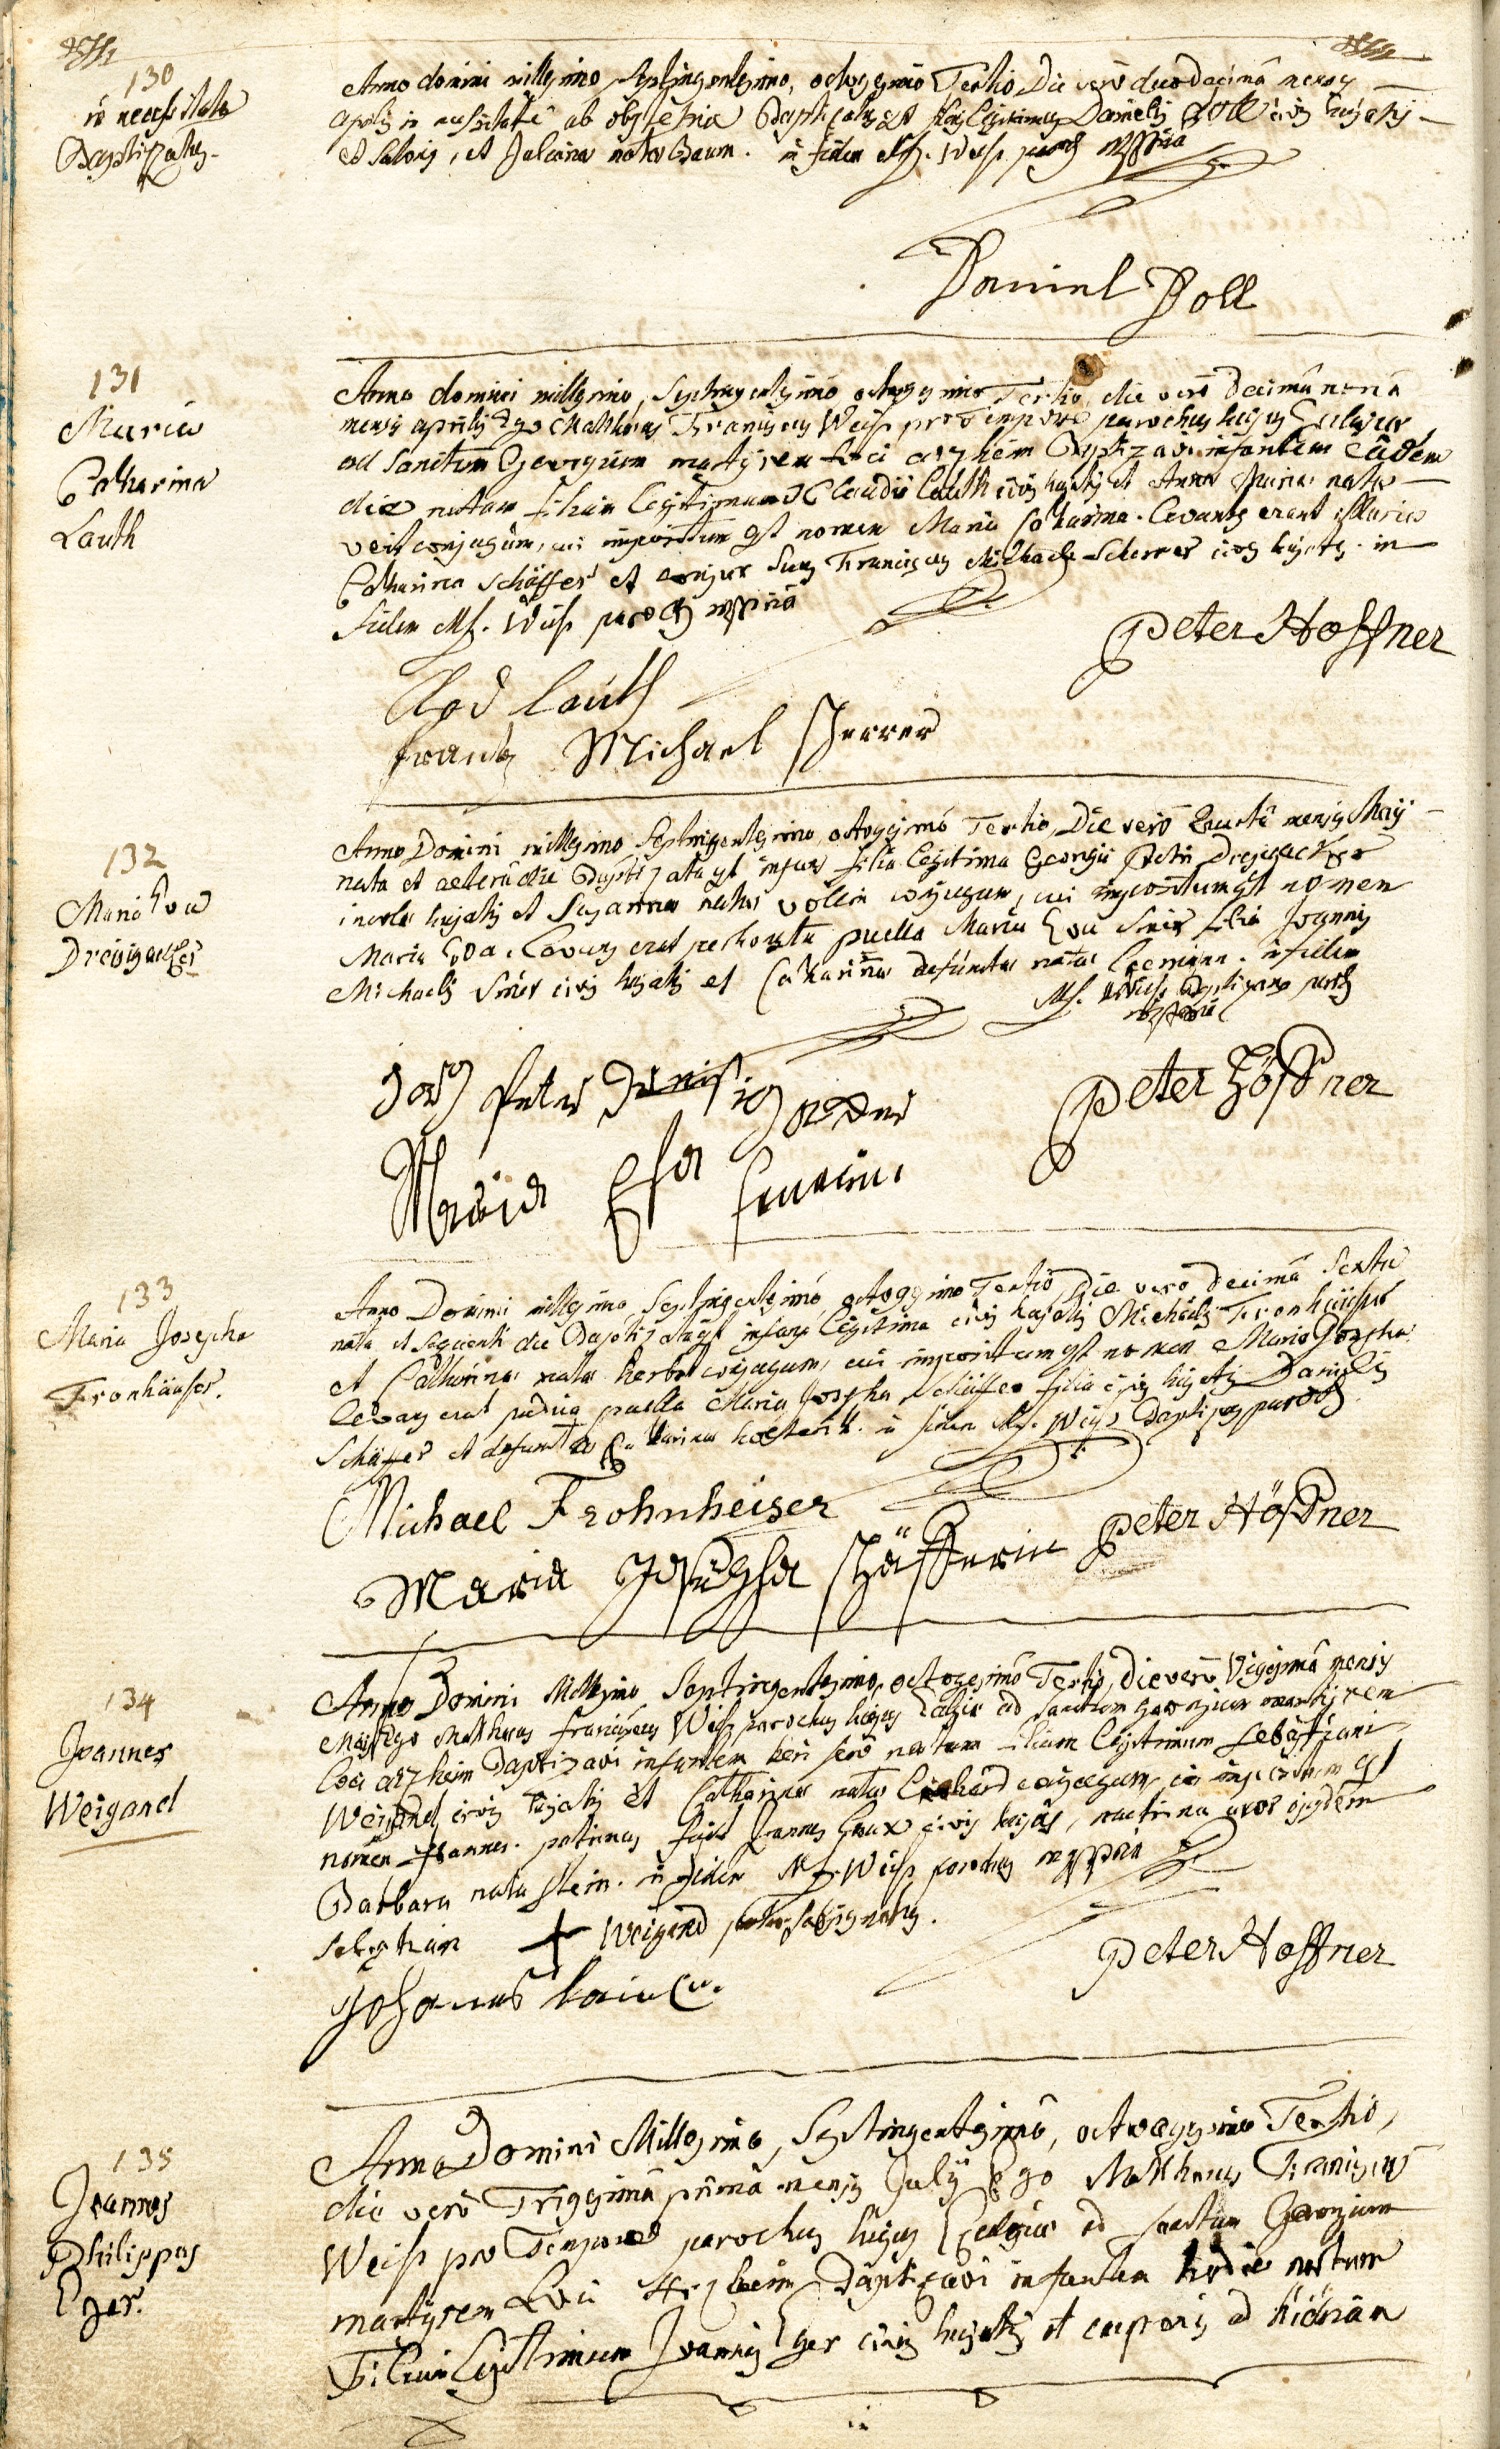 130
in necessitate
Baptizatus
Anno domini millesimo Septingentesimo, octogesimo Tertio Die vero duodecimâ mensis
aprilis in necessitate ab obstetrice Baptizatus est filius legitimus Danielis Doll civis hujatis
et sutoris, et Julianae natae Baum. in fidem Mf. Weiss parochus mppria
Daniel Doll
131
Maria
Catharina
Lauth
Anno domini millesimo, Septingentesimo octogesimo Tertio, die vero Decimâ nonâ
mensis aprilis Ego Matthaeus Franciscus Weiss pro tempore parochus hujus Ecclesiae
ad Sanctum Georgium martyrem loci arzheim Baptizavi infantem eâdem
die natam filiam legitimam Claudii Lauth civis hujatis et Annae Mariae natae
veit conjugum, cui impositum est nomen Maria Catharina. Levantes erant Maria
Catharina Schäffer et conjux Suus Franciscus Michael Scherrer civis hujatis. in
fidem Mf. Weiss parochus mppria
Peter Hoffner
Clod Lauth
Frantz Michael Scherrer
132
Maria Eva
Dreisigacker
Anno Domini millesimo Septingentesimo, octogesimo Tertio, Die vero quartâ mensis Maij
nata et alterâ die Baptizata est infans filia legitima Georgii Petri Dreisigacker
incolae hujatis et Susannae natae völlin conjugum, cui impositum est nomen
Maria Eva. Levans erat perhonesta puella Maria Eva Smir filia Joannis
Michaelis Smir civis hujatis et Catharinae defunctae natae. in fidem
Mf. Weiss Baptizans parochus
mppria
Jorg Peter Dreisigacker
Peter Höffner
Maria Efa
133
Maria Josepha
Fronhäuser.
Anno Domini millesimo Septingentesimo octogesimo Tertio Die vero Decimâ Sextâ
nata et sequenti die Baptizata est infans legitima civis hujatis Michaelis Fronhäuser
et Catharinae natae herbst conjugum, cui impositum est nomen Maria Josepha.
levans erat pudica puella Maria Josepha Schäffer filia civis hujatis Danielis
Schäffer et defunctae Catharinae. in fidem Mf. Weiss Baptizans parochus
Michael Frohnheiser
Maria Josepha Schäfferin
Peter Höffner
134
Joannes
Weigand
Anno Domini Millesimo Septingentesimo, octogesimo Tertio, die vero Vigesimâ mensis
Maij Ego Matthaeus franciscus Weiss parochus hujus Ecclesiae ad Sanctum Georgium martyrem
loci arzheim Baptizavi infantem heri sero natum filium legitimum Sebastiani
Weigand civis hujatis et Catharinae natae conjugum, cui impositum est
nomen Joannes. patrinus fuit Joannes civis hujas, matrina uxor ejusdem
Barbara nata Stein. in fidem Mf. Weiss parochus mppria
Sebastian + Weigand pater subsignatus.
Peter Hoffner
Johannes
135
Joannes
Philippus
Eger.
Anno Domini Millesimo, Septingentesimo, octogesimo Tertio,
die vero Trigesimâ primâ mensis Julij Ego Matthaeus Franciscus
Weiss pro Tempore parochus hujus Ecclesiae ad Sanctum Georgium
martyrem Loci Arzheim Baptizavi infantem hodie natum
Filium Legitimum Joannis Eger civis hujatis et cauponis ad